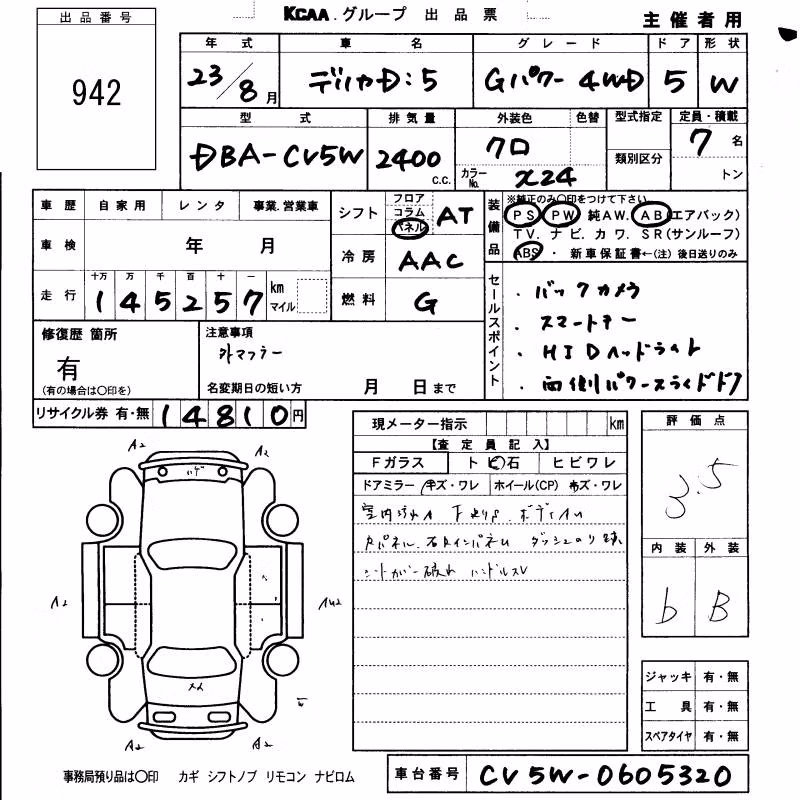 KCAA.グループ 出品票
主催者用
出品番号
942
年式 車名 グレード ドア 形状
23/8月 デリカD:5 Gパワー 4WD 5 W
型式 排気量 外装色 色替 型式指定 定員・積載
DBA-CV5W 2400 c.c. クロ カラーNo. X24 類別区分 7名
トン
車歴 自家用 レンタ 事業.営業車
車検 年 月
走行 十万 万 千 百 十 一
145257 km マイル
シフト フロア コラム パネル AT
冷房 AAC
燃料 G
装備品 ※純正のみ○印をつけて下さい
PS PW 純AW. AB(エアバック)
TV. ナビ. カワ. SR(サンルーフ)
ABS ・ 新車保証書←(注) 後日送りのみ
セールスポイント
・バックカメラ
・スマートキー
・HIDヘッドライト
・両側パワースライドドア
修復歴 箇所
有
(有の場合は○印を)
注意事項
外マフラー
名変期日の短い方 月 日まで
リサイクル券 有・無 14810円
現メーター指示 km
【査定員記入】
Fガラス トビ石 ヒビワレ
ドアミラー キズ・ワレ ホイール(CP) キズ・ワレ
室内汚れ
ハンドルスレ
評価点
3.5
内装 外装
b B
ジャッキ 有・無
工具 有・無
スペアタイヤ 有・無
A2 A2
A2
A2 A2
事務局預り品は○印 カギ シフトノブ リモコン ナビロム
車台番号 CV5W-0605320